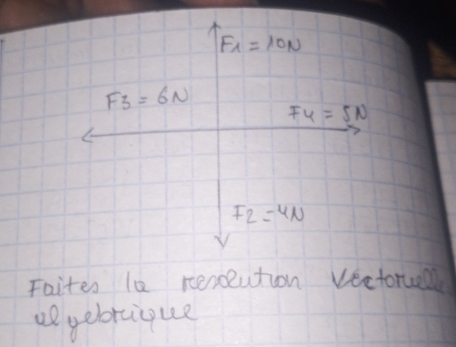 F1 = 10N
F3 = 6N
F4 = 5N
F2 = 4N
Faites la resolution vectorielle
algebrique